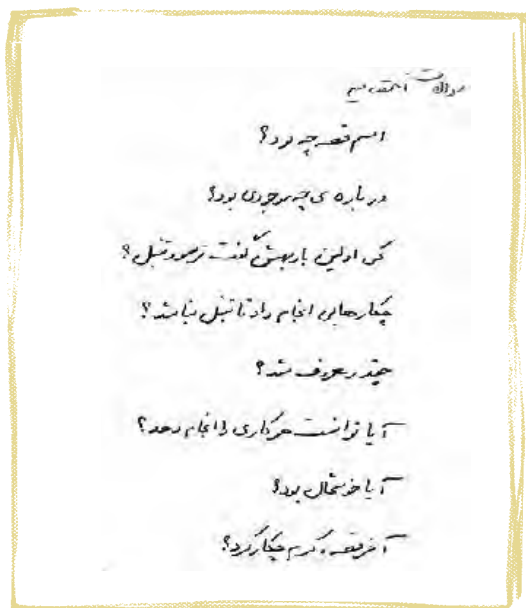 سوالات
اسم قصه چه بود؟
درباره ی چه موجودی بود؟
کی اولین بار بهش گفت ترسو و تنبل؟
چکارهایی انجام داد تا تنبل نباشد؟
چقدر معروف شد؟
آیا توانست هر کاری را انجام دهد؟
آیا خوشحال بود؟
آخر قصه کرم چکار کرد؟